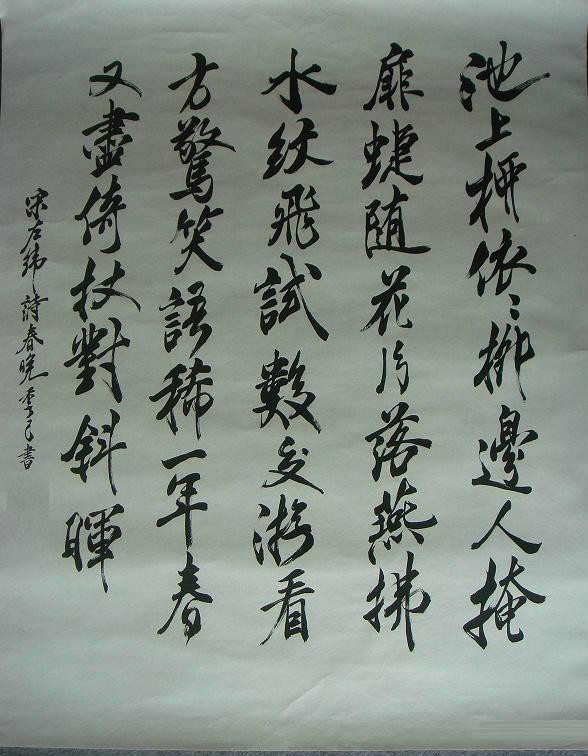 池上柳依々柳邊人掩
扉蝶随花片落燕拂
水紋飛試數交游看
方驚笑語稀一年春
又盡倚杖對斜暉
宋左緯詩春晚書